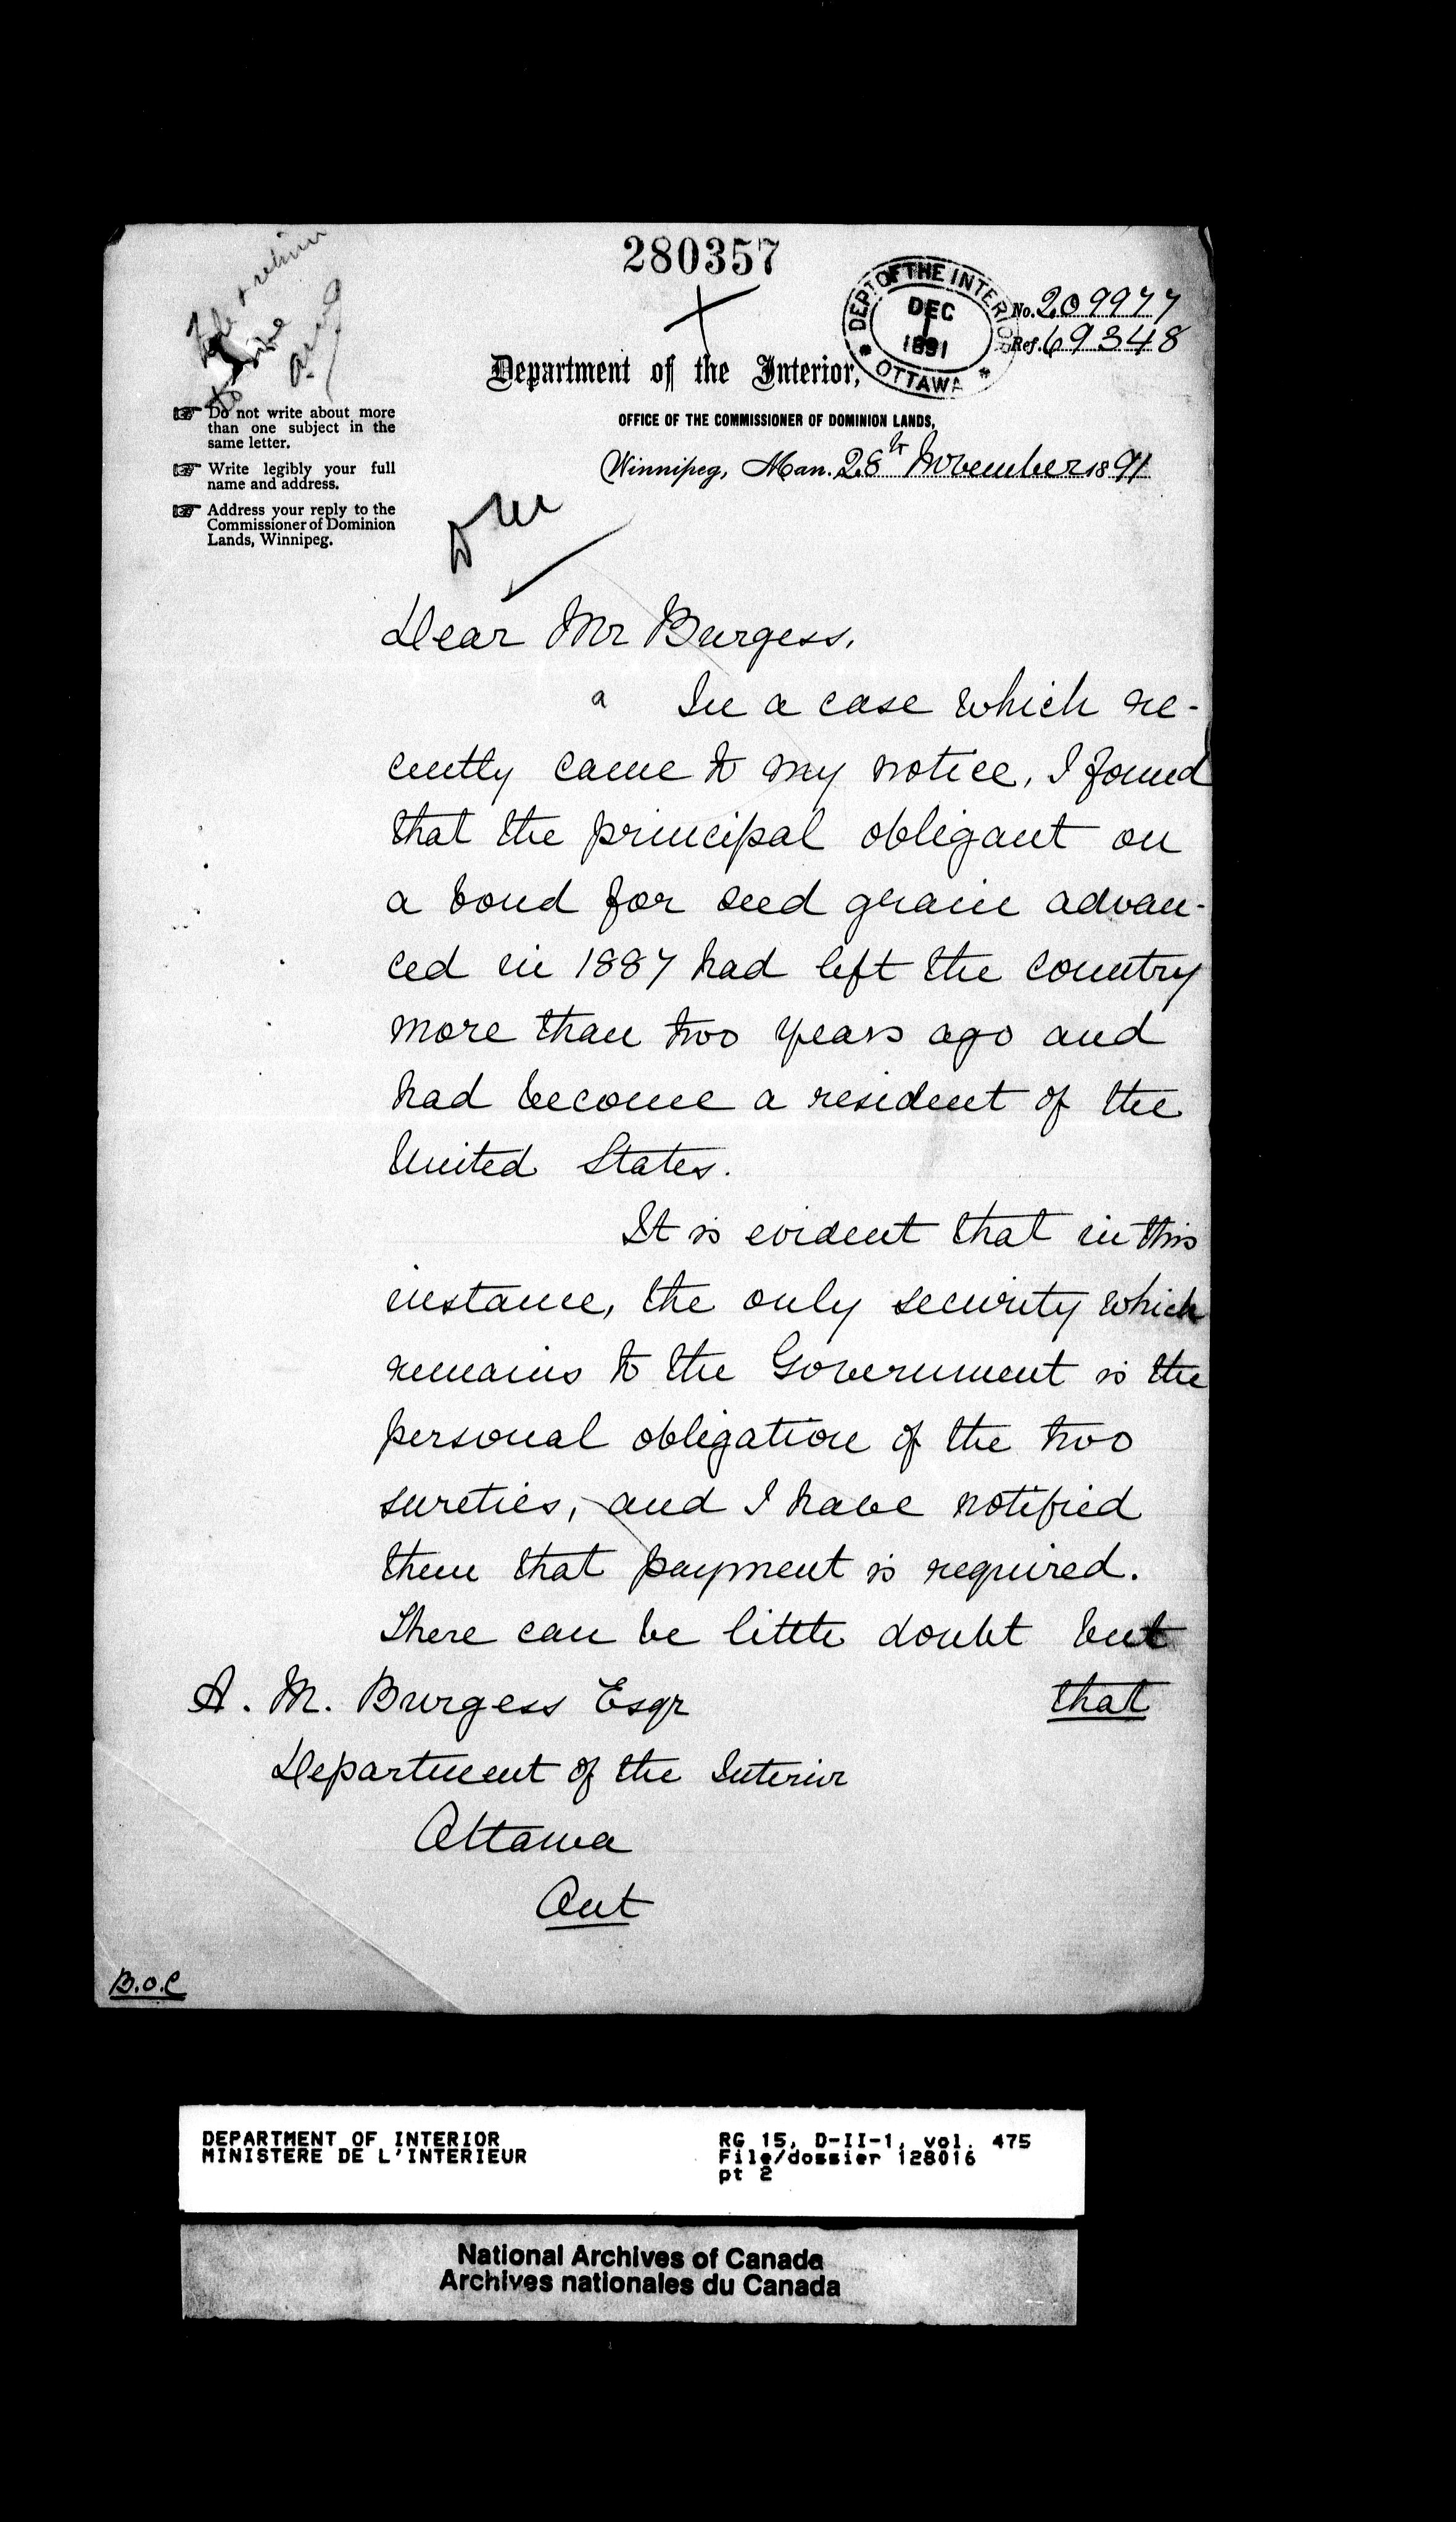 280357
DEPT OF THE INTERIOR
DEC
1
1891
OTTAWA
No. 209977
Ref. 69348
Department of the Interior,
OFFICE OF THE COMMISSIONER OF DOMINION LANDS,
Winnipeg, Man. 28th November 1891
Do not write about more
than one subject in the
same letter.
Write legibly your full
name and address.
Address your reply to the
Commissioner of Dominion
Lands, Winnipeg.
Dear Mr Burgess,
a In a case which re-
cently came to my notice, I found
that the principal obligant on
a bond for seed grain advan-
ced in 1887 had left the country
more than two years ago and
had become a resident of the
United States.
It is evident that in this
instance, the only security which
remains to the Government is the
personal obligation of the two
sureties, and I have notified
them that payment is required.
There can be little doubt but
that
A. M. Burgess Esqr
Department of the Interior
Ottawa
Ont
B.O.C
DEPARTMENT OF INTERIOR
MINISTERE DE L'INTERIEUR
RG 15, D-II-1, vol. 475
File/dossier 128016
pt 2
National Archives of Canada
Archives nationales du Canada